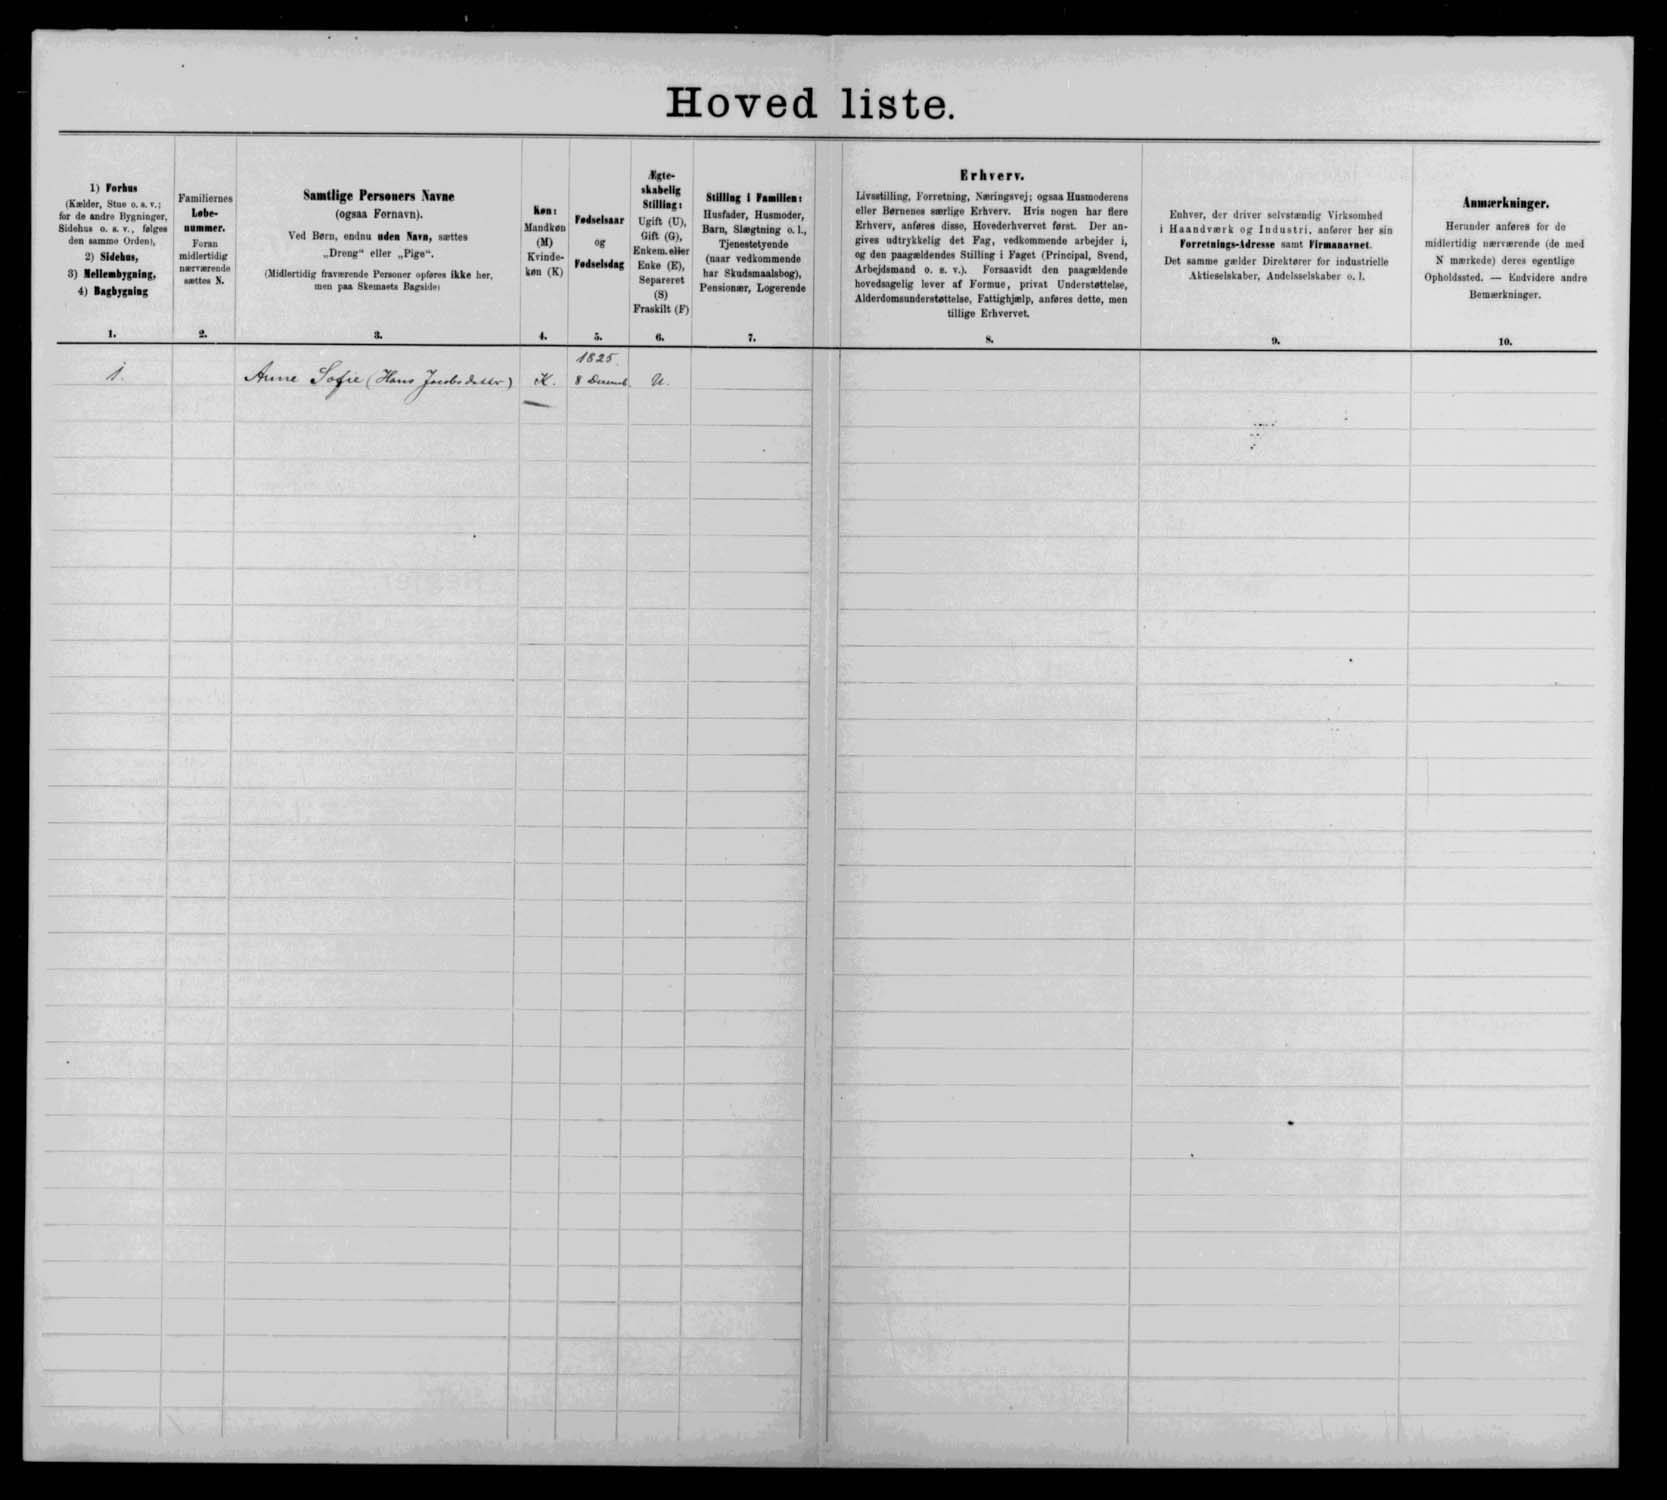 Hoved liste.
1) Forhus
(Kælder, Stue o. s. v.;
for de andre Bygninger,
Sidehus o. s. v., følges
den samme Orden),
2) Sidehus,
3) Mellembygning,
4) Bagbygning
1.
Familiernes
Løbe-
nummer.
Foran
midlertidig
nærværende
sættes N.
2.
Samtlige Personers Navne
(ogsaa Fornavn).
Ved Børn, endnu uden Navn, sættes
„Dreng“ eller „Pige“.
(Midlertidig fraværende Personer opføres ikke her,
men paa Skemaets Bagside)
3.
Køn:
Mandkøn
(M)
Kvinde-
køn (K)
4.
Fødselsaar
og
Fødselsdag
5.
Ægte-
skabelig
Stilling:
Ugift (U),
Gift (G),
Enkem. eller
Enke (E),
Separeret
(S)
Fraskilt (F)
6.
Stilling i Familien:
Husfader, Husmoder,
Barn, Slægtning o. l.,
Tjenestetyende
(naar vedkommende
har Skudsmaalsbog),
Pensionær, Logerende
7.
Erhverv.
Livsstilling, Forretning, Næringsvej; ogsaa Husmoderens
eller Børnenes særlige Erhverv. Hvis nogen har flere
Erhverv, anføres disse, Hovederhvervet først. Der an-
gives udtrykkelig det Fag, vedkommende arbejder i,
og den paagældendes Stilling i Faget (Principal, Svend,
Arbejdsmand o. s. v.). Forsaavidt den paagældende
hovedsagelig lever af Formue, privat Understøttelse,
Alderdomsunderstøttelse, Fattighjælp, anføres dette, men
tillige Erhvervet.
8.
Enhver, der driver selvstændig Virksomhed
i Haandværk og Industri, anfører her sin
Forretnings-Adresse samt Firmanavnet.
Det samme gælder Direktører for industrielle
Aktieselskaber, Andelsselskaber o. l.
9.
Anmærkninger.
Herunder anføres for de
midlertidig nærværende (de med
N mærkede) deres egentlige
Opholdssted. — Endvidere andre
Bemærkninger.
10.
1.
Anne Sofie (Hans Jacobsdatter)
K.
1825.
8 Decemb.
U.